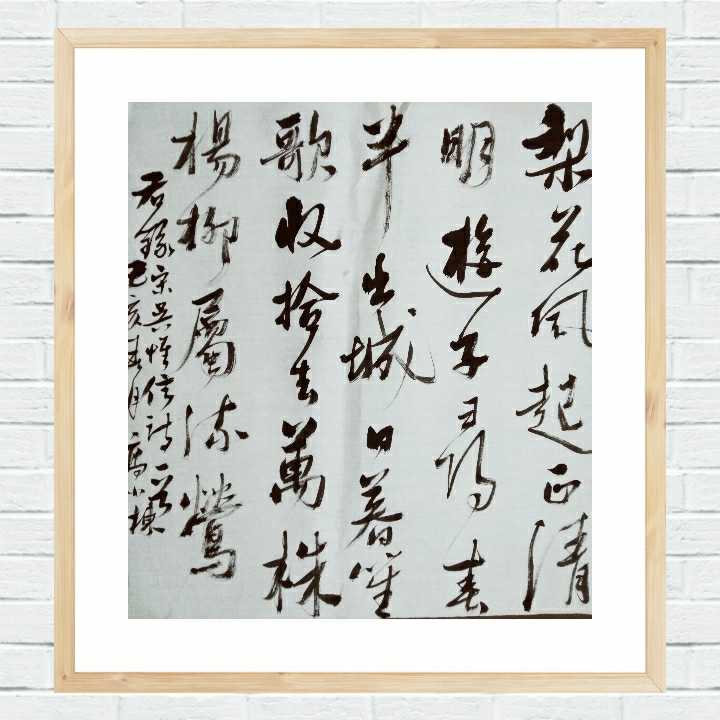 梨花风起正清
明遊子尋春
半出城日暮笙
歌收拾去萬株
楊柳屬流鶯
右錄宋吳惟信詩一首
己亥春月